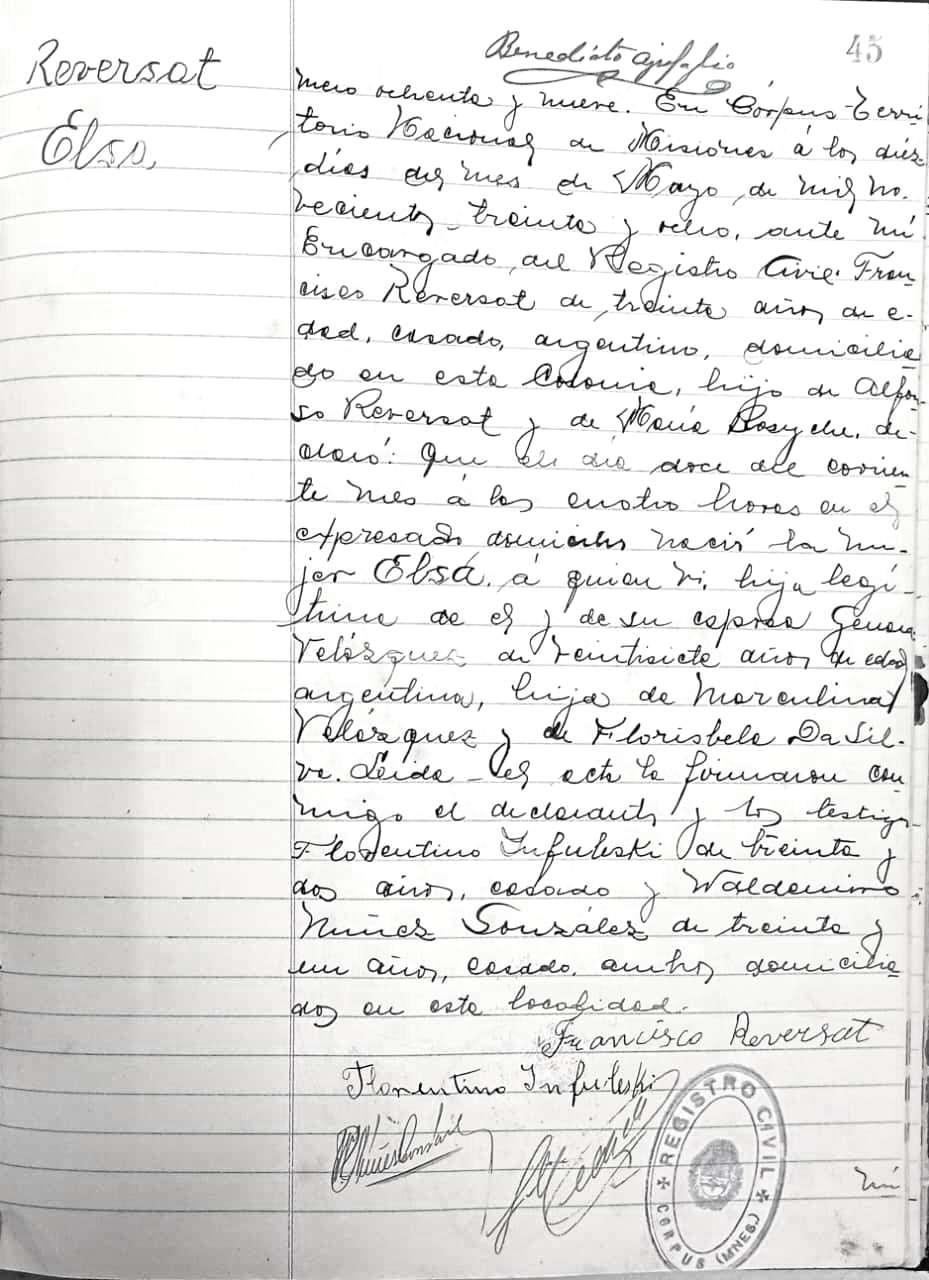 45
Reversat
Elsa
Benedicto
mero ochenta y nueve. En Corpus Terri
torio Nacional de Misiones á los diez
días del mes de Mayo de mil no-
vecientos treinta y ocho, ante mí
Encargado del Registro Civil: Fran
cisco Reversat de treinta años de e-
dad, casado, argentino, domicilia
do en esta Colonia, hijo de Alfon
so Reversat y de María de-
claró: Que el día doce del corrien
te mes á las cuatro horas en el
expresado domicilio nació la mu-
jer Elsa, á quien ví, hija legí-
tima de el y de su esposa
Velázquez de veintisiete años de edad
argentina, hija de Marculina
Velázquez y de Florisbela Da Sil-
va. Leida el acta la firmaron con
migo el declarante y los testigos
Florentino Infuleski de treinta y
dos años, casado y Waldomiro
Nuñez González de treinta y
un años, casado, ambos domicilia
dos en esta localidad.
Francisco Reversat
Florentino Infuleski
REGISTRO CIVIL
CORPUS (MNES.)